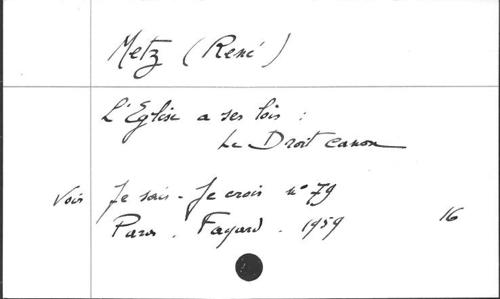 Metz (René)
L'Eglise a ses lois :
Le Droit canon
Voir Je sais - Je crois n° 79
Paris . Fayard . 1959 16